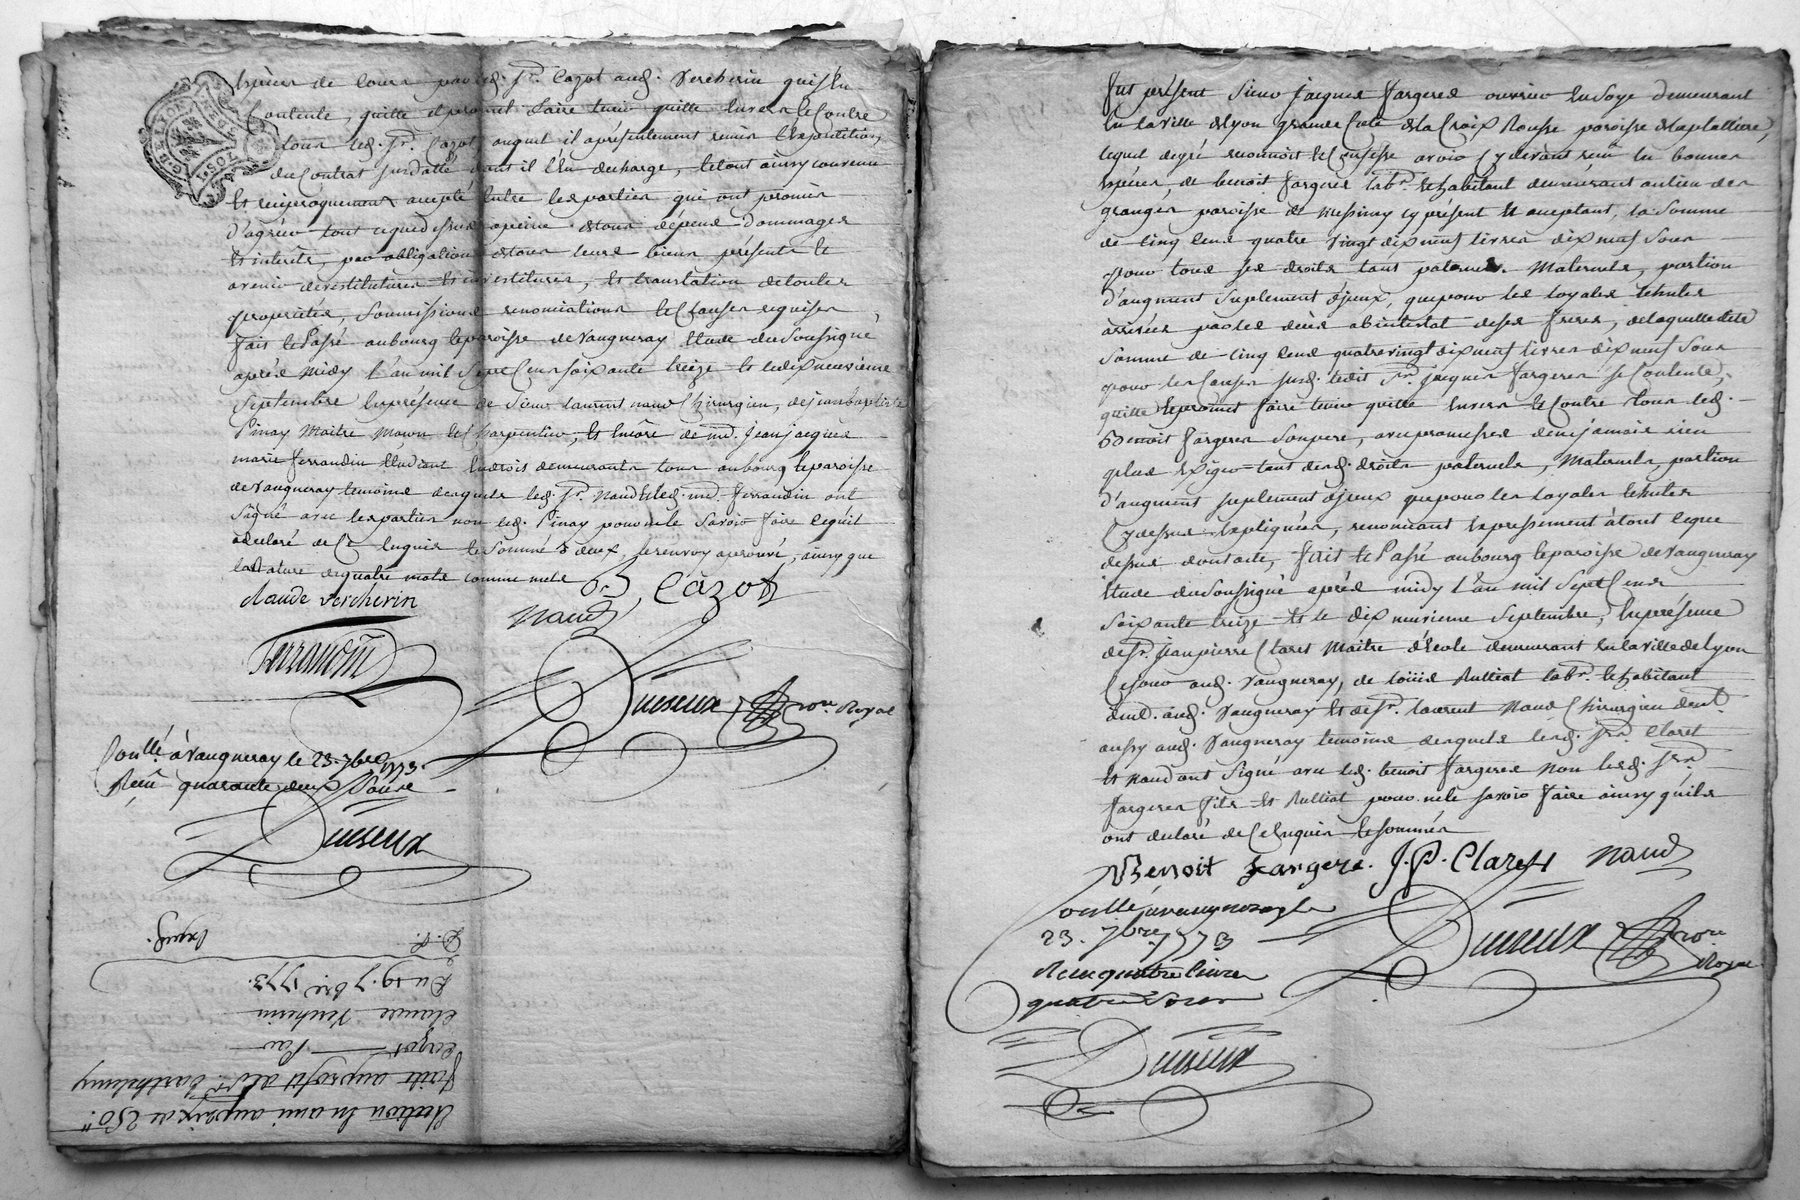 Espèces de cours par led. Sr. Cazot aud. Vercherin qui s'en
Contente, quitte et promet faire tenir quitte envers et Contre
tous led. Sr. Cazot auquel il a présentement remis l'Expedition
du Contrat susdatté dont il l'En decharge, le tout ainsy convenu
Et reciproquement accepté Entre les parties qui ont promis
D'agréer tout ce que dessus a peine de tous dépens Dommages
Et interets par obligation de tous leurs biens présents et
avenir devestitures Investitures, Et translation de toutes
proprietés, Soumissions renonciations et Clauses requises
fait et Passé au bourg et paroisse de Vaugneray Etude du Soussigné
après Midy l'an mil Sept Cens soixante treize et le dix neuvieme
Septembre En présence de Sieur Laurent naud Chirurgien, de jean baptiste
Pinay Maitre Maçon et Charpentier, Et Encore de md. Jean jacques
marie ferrandin Etudiant En droit demeurants tous au bourg et paroisse
de Vaugneray temoins desquels led. Sr. Naud et led. md. ferrandin ont
Signé avec les parties non led. Pinay pour ne le savoir faire ce qu'il
a declaré de Ce Enquis et Sommé deux, le renvoy aprouvé, ainsy que
la Rature de quatre mots comme nuls
Claude Vercherin
B. Cazot
naud
ferrandin
Duseux nore. Royal
Conllé. à Vaugneray le 23. 7bre 1773.
Reçu quarante deux Sous
Duseux
Election En ami au prix de 250"
faite au profit de Sr. Barthelemy
Cazot — Par
Claude Vercherin
Du 19. 7bre 1773.
Exped.
fut présent Sieur Jacques fargeres ouvrier En Soye demeurant
En la ville de Lyon grande Cote de la Croix Rousse paroisse de la platiere,
lequel de gré reconnoit et Confesse avoir Cy devant reçu En bonnes
Especes, de benoit fargeres labr. Et habitant demeurant au lieu des
granges paroisse de Messimy cy présent Et acceptant, la Somme
de Cinq Cens quatre Vingt dix neuf livres dix neuf Sous
pour tous ses droits tant paternels. Maternels, portion
d'augment Suplement d'jceux, que pour les loyales Echutes
arrivées par les décès ab intestat de ses freres, de laquelle dite
Somme de Cinq Cens quatrevingt dix neuf livres dix neuf Sous
pour les Causes susd. ledit Sr. jacques fargeres se Contente,
quitte Et promet faire tenir quitte Envers et Contre tous led.
Benoit fargeres Son pere, avec promesse de ne jamais rien
plus Exiger tant desd. droits paternels, Maternels, portion
d'augment suplement d'jceux que pour les loyales Echutes
Cy dessus Expliquées, renonçant Expressement à tout ce que
dessus dont acte, fait et Passé au bourg et paroisse de Vaugneray
Etude du Soussigné après midy l'an mil Sept Cens
Soixante treize Et le dix neuvieme Septembre, En présence
de Sr. jean pierre Claret Maitre d'Ecole demeurant En la ville de Lyon
Ce jour aud. Vaugneray, de Louis Rulliat labr. Et habitant
aud. Vaugneray Et de Sr. laurent Naud Chirurgien demt.
aussy aud. Vaugneray temoins desquels lesd. Srs. Claret
Et Naud ont Signé avec led. benoit fargeres Non led. Sr.
fargeres fils Et Rulliat pour ne le savoir faire ainsy qu'ils
ont declaré de Ce Enquis Et Sommés
Benoit fargere. J. P. Claret naud
Conllé. a vaugneray le
23. 7bre. 1773
Reçu quatre livres
quatre Sous
Duseux nore.
Royal
Duseux